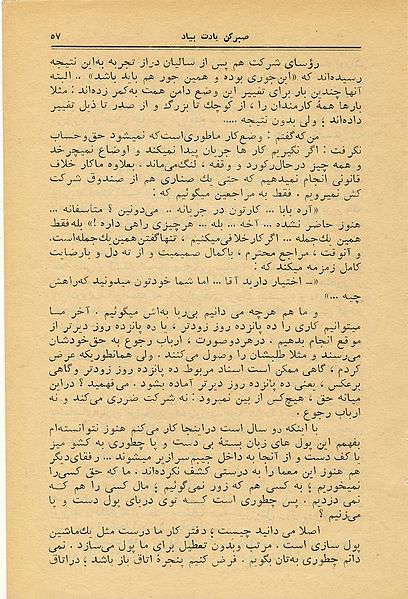 صبرکن یادت بیاد ۵۷
رؤسای شرکت هم پس از سالیان دراز تجربه به‌این نتیجه
رسیده‌اند که «این‌جوری بوده و همین جور هم باید باشد» .. البته
آنها چندین بار برای تغییر این وضع دامن همت به‌کمر زده‌اند : مثلا
بارها همهٔ کارمندان را ، از کوچك تا بزرگ و از صدر تا ذیل تغییر
داده‌اند ؛ ولی بدون نتیجه .....
من‌که‌گفتم : وضع‌کار ماطوری‌است‌که نمیشود حق‌وحساب
نگرفت : اگر نگیریم کار ها جریان پیدا نمیکند و اوضاع نمیچرخد
و همه چیز درحال‌رکورد و وقفه ، لنگ‌می‌ماند . بعلاوه ماکار خلاف
قانونی انجام نمیدهیم که حتی یك صناری هم از صندوق شرکت
کش نمیرویم . فقط به مراجعین میگوئیم که :
«– آره بابا ... کارتون در جریانه .. می‌دونین ؟ متاسفانه ...
هنوز حاضر نشده ... آخه ... بله ... هرچیزی راهی داره !» بله‌فقط
همین یك‌جمله ... اگر کار خلافی‌میکنیم ، تنهاگفتن‌همین‌یك‌جمله‌است.
و آنوقت ، مراجع محترم ، باکمال صمیمیت و از ته دل و بارضایت
کامل زمزمه میکند که :
«– اختیار دارید آقا ... اما شما خودتون میدونید که‌راهش
چیه ...»
و ما هم هرچه می دانیم بی‌ریا به‌اش میگوئیم . آخر مــا
میتوانیم کاری را ده پانزده روز زودتر ، یا ده پانزده روز دیرتر از
موقع انجام بدهیم . درهردوصورت ، ارباب رجوع به حق‌خودشان
می‌رسند و مثلا طلبشان را وصول می‌کنند . ولی همانطوریکه عرض
کردم ، گاهی ممکن است اسناد مربوط ده پانزده روز زودتر وگاهی
برعکس ، یعنی ده پانزده روز دیرتر آماده بشود . می‌فهمید ؟ دراین
میانه حق ، هیچ‌کس از بین نمیرود : نه شرکت ضرری می‌کند و نه
ارباب رجوع .
با اینکه دو سال است دراینجا کار می‌کنم هنوز نتوانسته‌ام
بفهمم این پول های زبان بستهٔ بی دست و پا چطوری به کشو میز
یاکف دست و از آنجا به داخل جیبم‌سرازیر میشوند ... رفقای‌دیگر
هم هنوز این معما را به‌درستی کشف نکرده‌اند . ما که حق کسی‌را
نمیخوریم ؛ به کسی هم که زور نمی‌گوئیم ؛ مال کسی را هم کــه
نمی دزدیم . پس چطوری است کــه توی دریای پول دست و پا
می‌زنیم ؟
اصلا می دانید چیست ؛ دفتر کار ما درست مثل یك‌ماشین
پول سازی است . مرتب وبدون تعطیل برای ما پول می‌سازد . نمی
دانم چطوری به‌تان بگویم . فرض کنیم پنجرهٔ اتاق باز باشد ؛ دراتاق